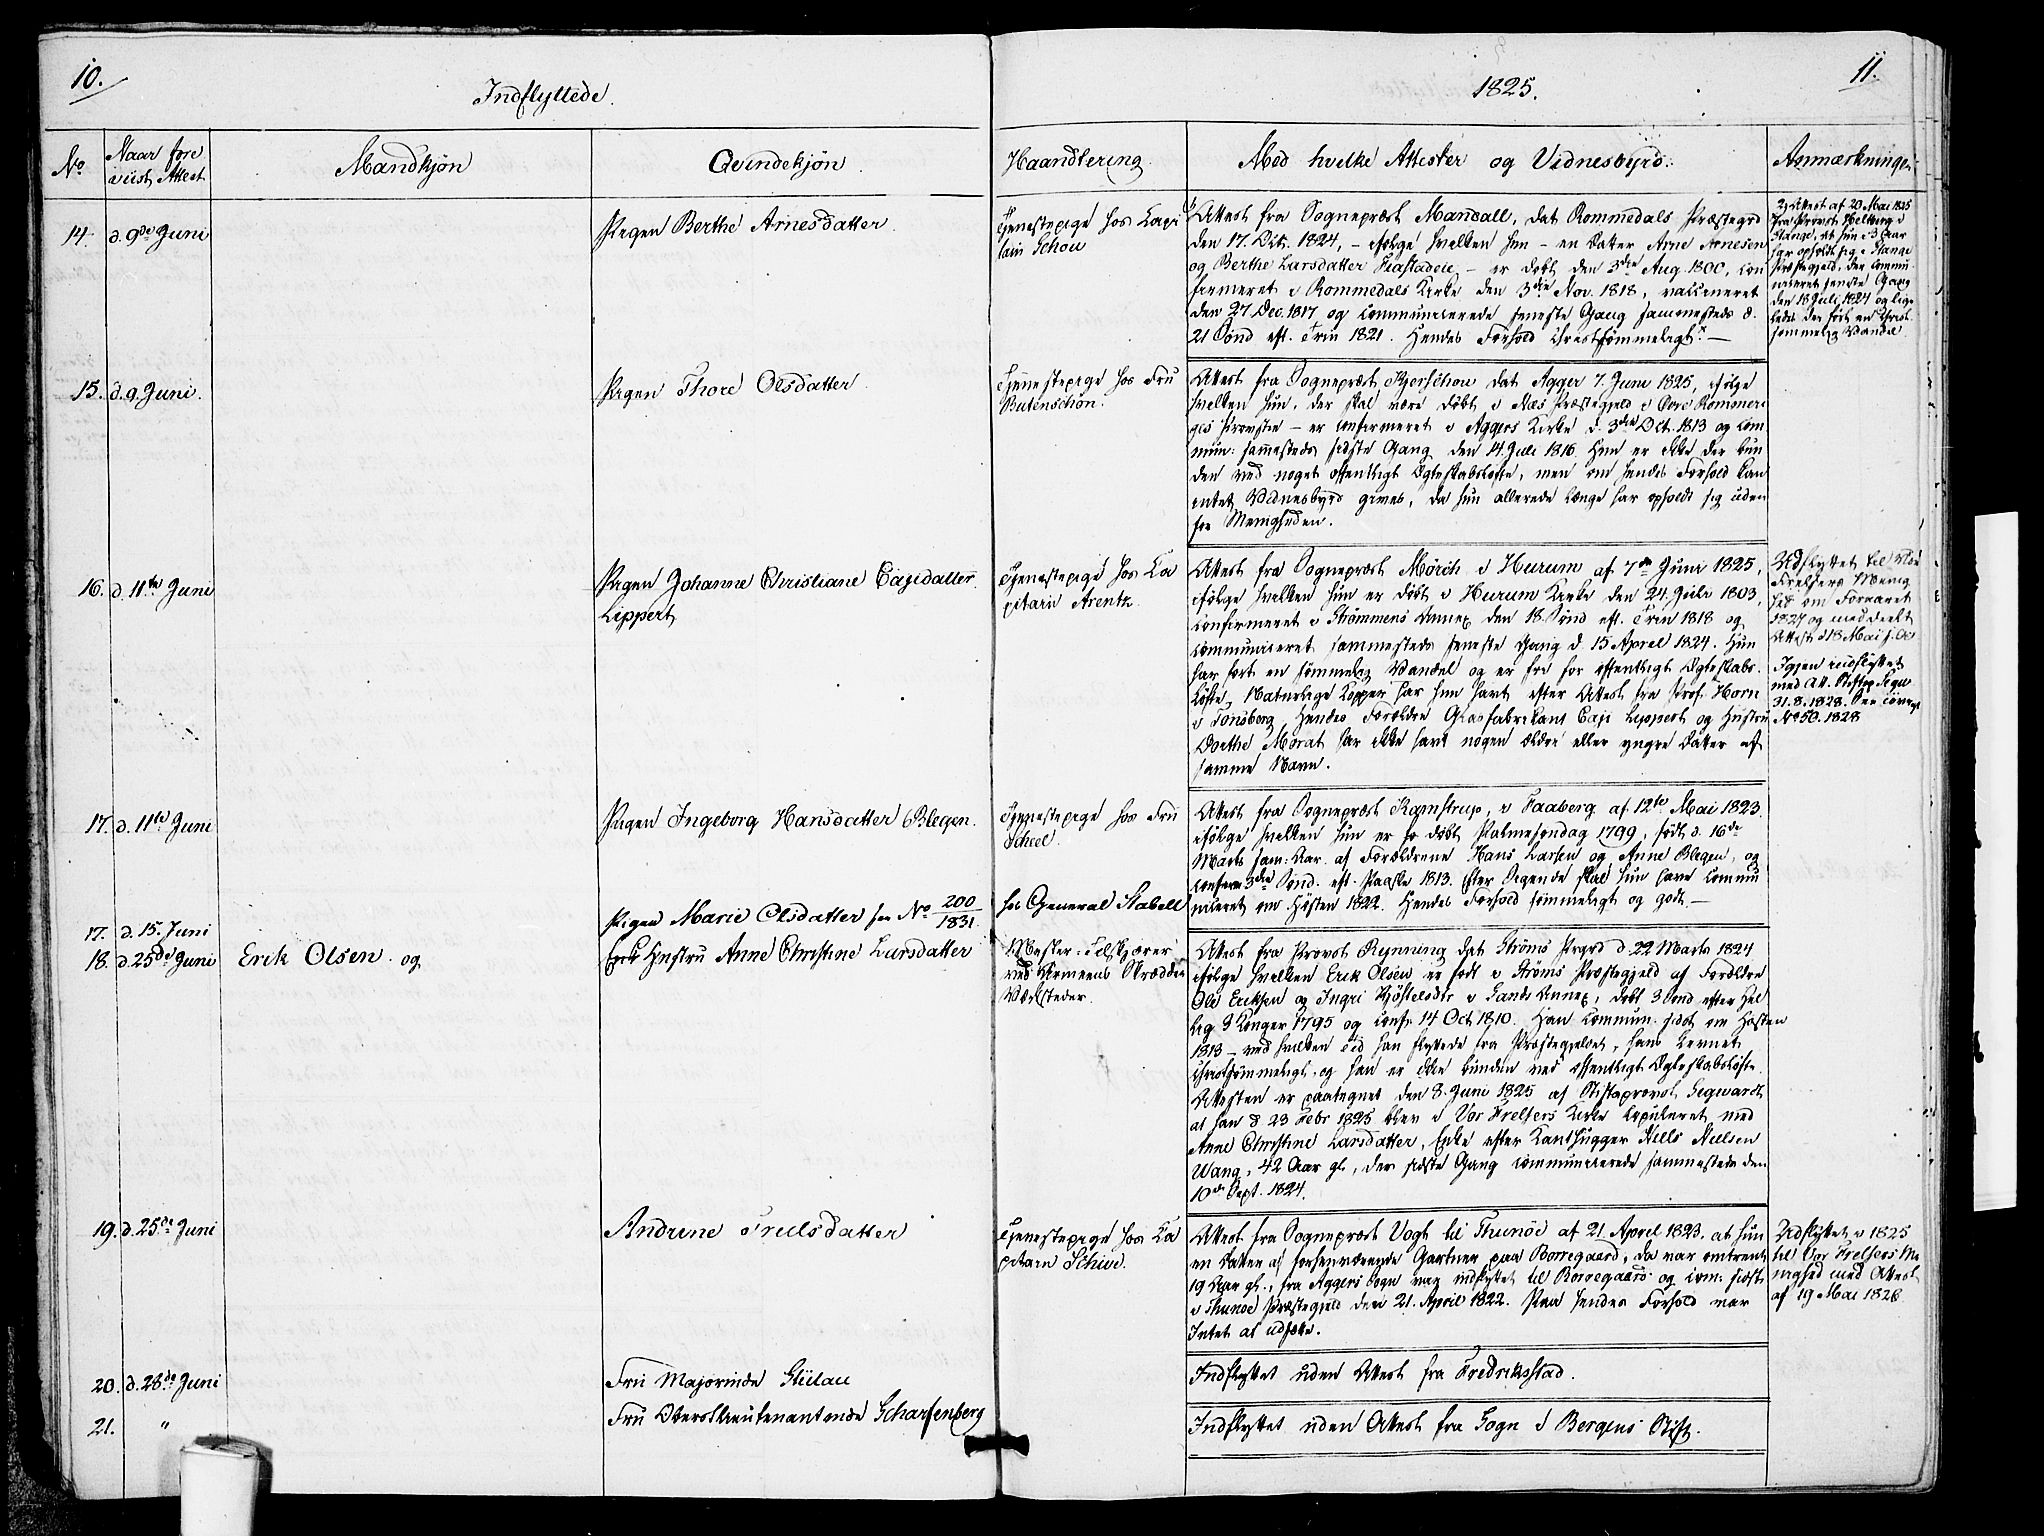 10.
Indflyttede.
1825.
11.
No
Naar fore
viist Attest
Mandkjøn
Qvindekjøn
Haandtering
Med hvilke Attester og Vidnesbyrd.
Anmærkninger
14. d. 9de Juni
Pigen Berthe Arnesdatter.
Tjenestepige hos Capi
tain Schou
Attest fra Sognepræst Mandall, dat Rommedals Præstegrd
den 17. Oct. 1824, – ifølge hvilken hun – en datter Arne Arnesen
og Berthe Larsdatter – er døbt den 3die Aug. 1800, con
firmeret i Rommedals Kirke den 3die Nov. 1818, vaccineret
den 27 Dec. 1817 og communicerede seneste Gang sammesteds d.
21 Sønd eft. Trin 1821. Hendes Forhold christsømmeligt. –
2) Attest af 20 Mai 1825
fra Provst Hellberg i
Stange, at hun i 3 Aar
har opholdt sig i Stange
Præstegjeld, der commu
niceret seneste Gang
den 18 Juli 1824 og lige
ledes der ført en christ
sømmelig Vandel
15. d. 9. Juni.
Pigen Thore Olsdatter.
Tjenestepige hos Fru
Butenschøn.
Attest fra Sognepræst Kjerschou dat Agger 7. Juni 1825, ifølge
hvilken hun, der skal være døbt i Næs Præstegjeld i Øvre Rommeri
ges Provstie – er confirmeret i Aggers Kirke d. 3die Oct. 1813 og com
mun: sammesteds sidste Gang den 14 Juli 1816. Hun er ikke der bun
den ved noget offentligt Ægteskabsløfte, men om hendes Forhold kan
intet Vidnesbyrd gives, da hun allerede længe har opholdt sig uden
for Menigheden.
16. d. 11te Juni
Pigen Johanne Christiane Cajidatter
Lippert
Tjenestepige hos Ca
pitain Arentz.
Attest fra Sognepræst Mörch i Hurum af 7de Juni 1825,
ifølge hvilken hun er døbt i Hurum Kirke den 24. Juli 1803,
confirmeret i Strømmens Annex den 18. Sønd eft. Trin 1818 og
communiceret sammesteds seneste Gang d. 15 April 1824. Hun
har ført en sømmelig Vandel og er fri for offentligt Ægteskabs-
Løfte. Naturlige Kopper har hun havt efter Attest fra Prof. Horn
i Tønsberg. Hendes Forældre Glasfabrikant Caji Lippert og Hustru
Dorthe Morat har ikke havt nogen ældre eller yngre datter af
samme Navn.
Udflyttet til Vor
Frelsers Menig
hed om Foraaret
1827 og meddeelt
Attest d 18 Mai
Igjen indflyttet
med Att. Stiftsp Segw
31.8.1828. See
No 50. 1828
17. d. 11te Juni
Pigen Ingeborg Hansdatter Blegen.
Tjenestepige hos Fru
Scheel.
Attest fra Sognepræst Kamstrup, i Faaberg af 12te Mai 1823.
ifølge hvilken hun er døbt Palmesøndag 1799, født d. 16de
Marts sam: Aar. af Forældrene Hans Larsen og Anne Blegen, og
conferm 3die Sønd. eft. Paaske 1813. Efter Sigende skal hun have commu
niceret om Høsten 1822. Hendes Forhold sømmeligt og godt. –
17. d. 15. Juni
Pigen Marie Olsdatter see No 200/1831
hos General Stabell
18. d. 25de Juni
Erik Olsen og
Hustru Anne Christine Larsdatter
Mester
ved Armeens Skrædder
Værksteder.
Attest fra Provst Rynning dat Strøms Prgrd d 22 Marts 1824
ifølge hvilken Erik Olsen er født i Strøms Præstegjeld af Forældre
Ole Eriksen og Ingri i Sands Annex, døbt 3 Sønd efter Hel
lig 3 Konger 1795 og conf: 14 Oct 1810. Han commun. sidst om Høsten
1813 – ved hvilken Tid han flyttede fra Præstegjeldet, hans Levnet
christsømmeligt, og han er ikke bunden ved offentligt Ægteskabsløfte.
Attesten er paategnet den 8. Juni 1825 af Stiftsprovst Segwardt
at han d 23 Febr 1825 blev i Vor Frelsers Kirke copuleret med
Anne Christine Larsdatter, Enke efter Kanthugger Niels Nielsen
Wang, 42 Aar gl., der sidste Gang communicerede sammesteds den
10de Sept. 1824.
19. d. 25de Juni
Andrine Truelsdatter
Tjenestepige hos Ca
pitain Schive.
Attest fra Sognepræst Vogt til Thunöe af 21 April 1823, at hun
en datter af forhenværende Gartner paa Borregaard, da var omtrent
19 Aar gl., fra Aggers Sogn var indflyttet til Borregaard og com: sidst
i Thunøe Præstegjeld den 21. April 1822. Paa hendes Forhold var
Intet at udsætte.
Udflyttet i 1825
til Vor Frelsers Me
nighed med Attest
af 19 Mai 1826
20. d. 28de Juni
Fru Majorinde Stülau
Indflyttet uden Attest fra Fredriksstad.
21. "
Fru Oberstlieutenantinde Scharfenberg
Indflyttet uden Attest fra Sogn i Bergens Stift.